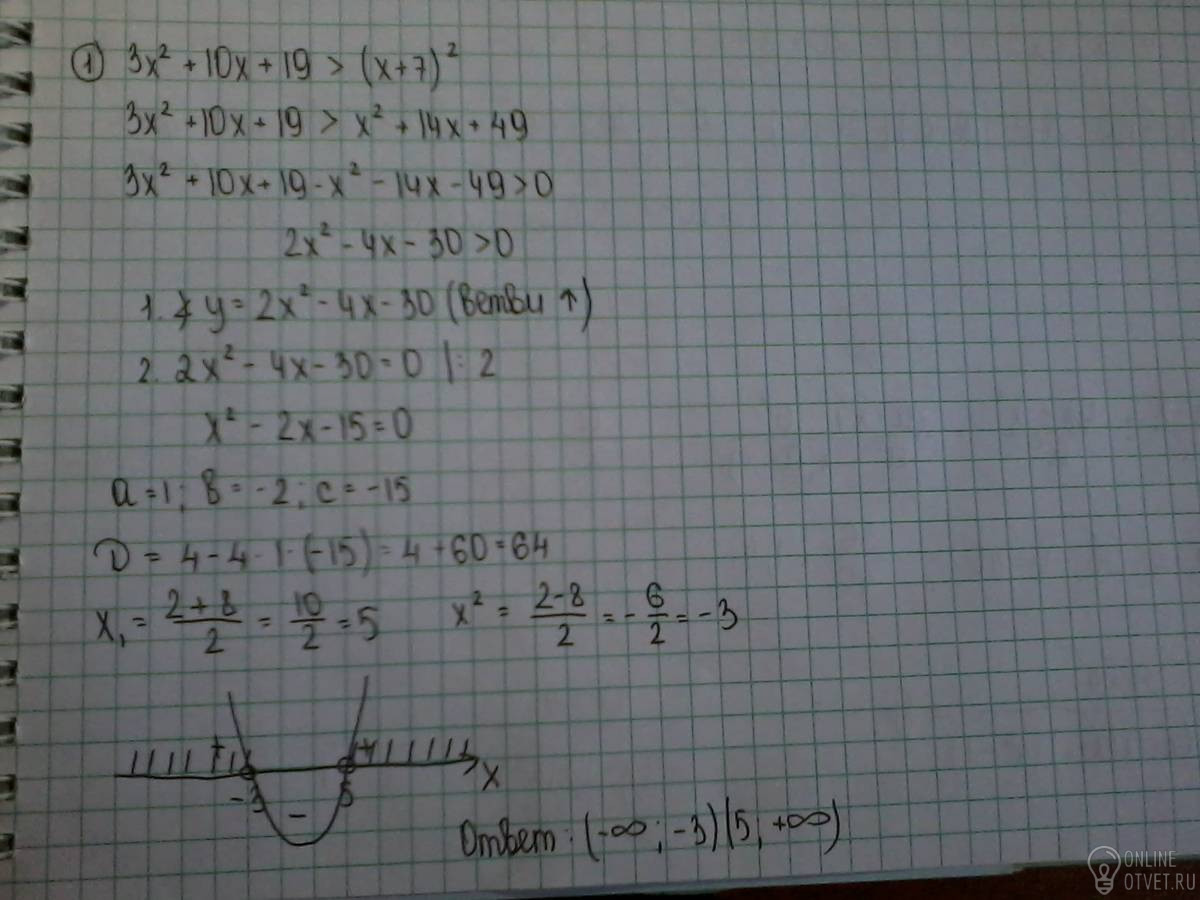 ① 3x² + 10x + 19 > (x+7)²
3x² + 10x + 19 > x² + 14x + 49
3x² + 10x + 19 - x² - 14x - 49 > 0
2x² - 4x - 30 > 0
1. y = 2x² - 4x - 30 (ветви ↑)
2. 2x² - 4x - 30 = 0 |: 2
x² - 2x - 15 = 0
a = 1; в = -2; c = -15
D = 4 - 4 · 1 · (-15) = 4 + 60 = 64
x₁ = (2+8)/2 = 10/2 = 5 x² = (2-8)/2 = -6/2 = -3
+ +
-3 - 5 x
Ответ: (-∞; -3)(5; +∞)
ONLINE
OTVET.RU